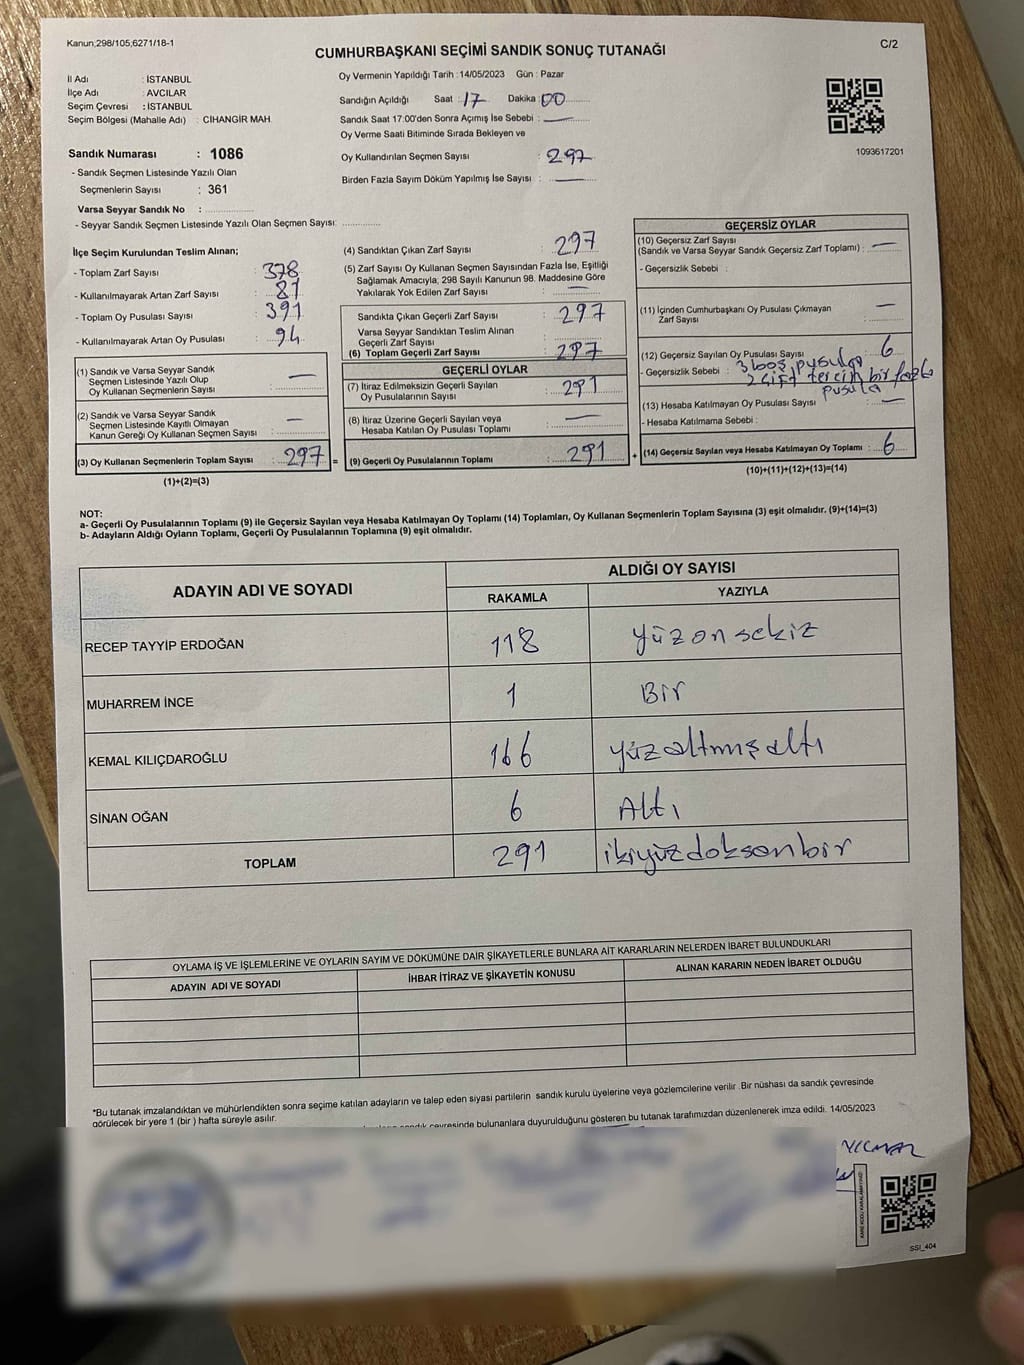 Kanun;298/105,6271/18-1
C/2
CUMHURBAŞKANI SEÇİMİ SANDIK SONUÇ TUTANAĞI
İl Adı : İSTANBUL
İlçe Adı : AVCILAR
Seçim Çevresi : İSTANBUL
Seçim Bölgesi (Mahalle Adı) : CİHANGİR MAH.
Sandık Numarası : 1086
- Sandık Seçmen Listesinde Yazılı Olan
Seçmenlerin Sayısı : 361
Varsa Seyyar Sandık No :
- Seyyar Sandık Seçmen Listesinde Yazılı Olan Seçmen Sayısı:
Oy Vermenin Yapıldığı Tarih : 14/05/2023 Gün : Pazar
Sandığın Açıldığı Saat : 17 Dakika : 00
Sandık Saat 17:00'den Sonra Açımış İse Sebebi : —
Oy Verme Saati Bitiminde Sırada Bekleyen ve
Oy Kullandırılan Seçmen Sayısı : 297
Birden Fazla Sayım Döküm Yapılmış İse Sayısı : —
1093617201
İlçe Seçim Kurulundan Teslim Alınan;
- Toplam Zarf Sayısı : 378
- Kullanılmayarak Artan Zarf Sayısı : 81
- Toplam Oy Pusulası Sayısı : 391
- Kullanılmayarak Artan Oy Pusulası : 94
(1) Sandık ve Varsa Seyyar Sandık
Seçmen Listesinde Yazılı Olup
Oy Kullanan Seçmenlerin Sayısı : —
(2) Sandık ve Varsa Seyyar Sandık
Seçmen Listesinde Kayıtlı Olmayan
Kanun Gereği Oy Kullanan Seçmen Sayısı : —
(3) Oy Kullanan Seçmenlerin Toplam Sayısı : 297 =
(1)+(2)=(3)
(4) Sandıktan Çıkan Zarf Sayısı : 297
(5) Zarf Sayısı Oy Kullanan Seçmen Sayısından Fazla İse, Eşitliği
Sağlamak Amacıyla; 298 Sayılı Kanunun 98. Maddesine Göre
Yakılarak Yok Edilen Zarf Sayısı : —
Sandıkta Çıkan Geçerli Zarf Sayısı : 297
Varsa Seyyar Sandıktan Teslim Alınan
Geçerli Zarf Sayısı :
(6) Toplam Geçerli Zarf Sayısı : 297
GEÇERLİ OYLAR
(7) İtiraz Edilmeksizin Geçerli Sayılan
Oy Pusulalarının Sayısı : 291
(8) İtiraz Üzerine Geçerli Sayılan veya
Hesaba Katılan Oy Pusulası Toplamı : —
(9) Geçerli Oy Pusulalarının Toplamı : 291 +
GEÇERSİZ OYLAR
(10) Geçersiz Zarf Sayısı
(Sandık ve Varsa Seyyar Sandık Geçersiz Zarf Toplamı) : —
- Geçersizlik Sebebi :
(11) İçinden Cumhurbaşkanı Oy Pusulası Çıkmayan
Zarf Sayısı : —
(12) Geçersiz Sayılan Oy Pusulası Sayısı : 6
- Geçersizlik Sebebi : 3 boş pusula
2 çift tercih bir fazla
pusula
(13) Hesaba Katılmayan Oy Pusulası Sayısı : —
- Hesaba Katılmama Sebebi :
(14) Geçersiz Sayılan veya Hesaba Katılmayan Oy Toplamı : 6
(10)+(11)+(12)+(13)=(14)
NOT:
a- Geçerli Oy Pusulalarının Toplamı (9) ile Geçersiz Sayılan veya Hesaba Katılmayan Oy Toplamı (14) Toplamları, Oy Kullanan Seçmenlerin Toplam Sayısına (3) eşit olmalıdır. (9)+(14)=(3)
b- Adayların Aldığı Oyların Toplamı, Geçerli Oy Pusulalarının Toplamına (9) eşit olmalıdır.
ADAYIN ADI VE SOYADI
ALDIĞI OY SAYISI
RAKAMLA YAZIYLA
RECEP TAYYİP ERDOĞAN 118 yüzonsekiz
MUHARREM İNCE 1 Bir
KEMAL KILIÇDAROĞLU 166 yüzaltmışaltı
SİNAN OĞAN 6 Altı
TOPLAM 291 ikiyüzdoksanbir
OYLAMA İŞ VE İŞLEMLERİNE VE OYLARIN SAYIM VE DÖKÜMÜNE DAİR ŞİKAYETLERLE BUNLARA AİT KARARLARIN NELERDEN İBARET BULUNDUKLARI
ADAYIN ADI VE SOYADI İHBAR İTİRAZ VE ŞİKAYETİN KONUSU ALINAN KARARIN NEDEN İBARET OLDUĞU
*Bu tutanak imzalandıktan ve mühürlendikten sonra seçime katılan adayların ve talep eden siyasi partilerin sandık kurulu üyelerine veya gözlemcilerine verilir .Bir nüshası da sandık çevresinde
görülecek bir yere 1 (bir ) hafta süreyle asılır.
sandık çevresinde bulunanlara duyurulduğunu gösteren bu tutanak tarafımızdan düzenlenerek imza edildi. 14/05/2023
SSİ_404